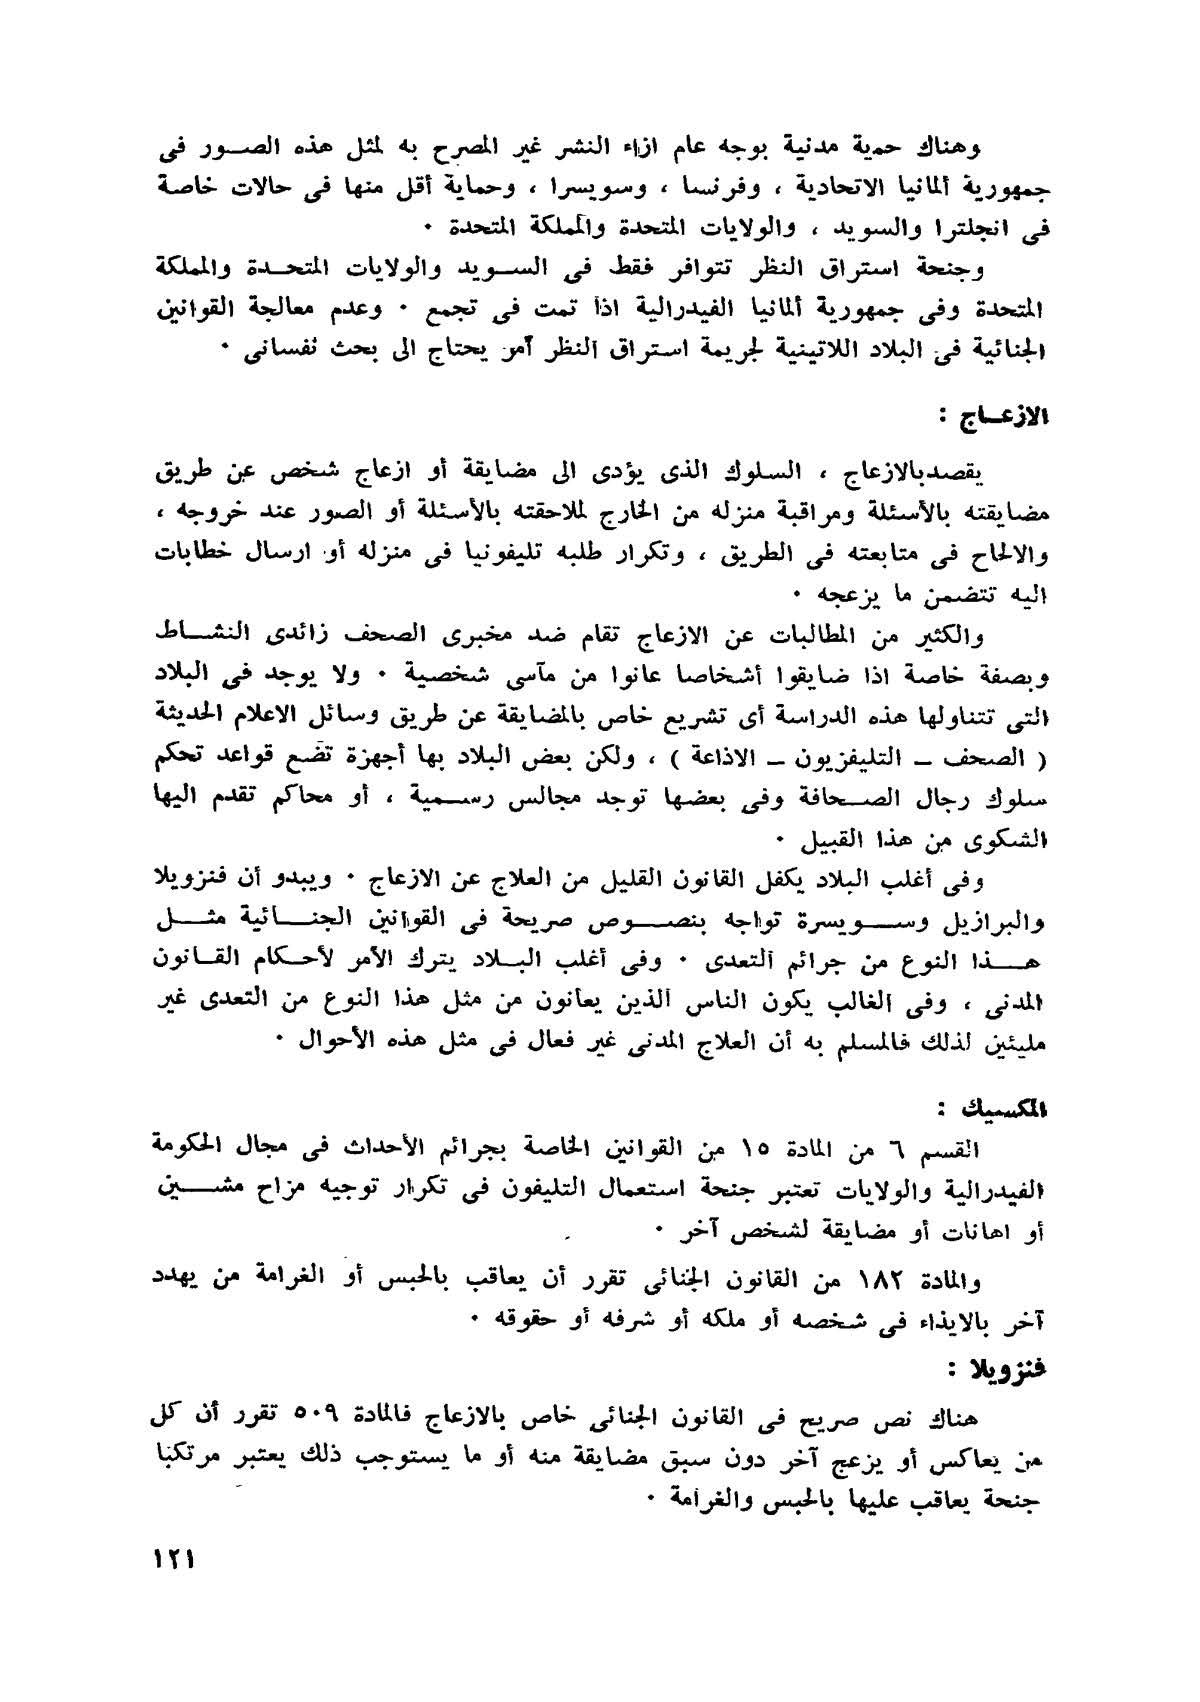 وهناك حمية مدنية بوجه عام ازاء النشر غير المصرح به لمثل هذه الصور فى
جمهورية ألمانيا الاتحادية ، وفرنسا ، وسويسرا ، وحماية أقل منها فى حالات خاصة
فى انجلترا والسويد ، والولايات المتحدة والمملكة المتحدة ٠
وجنحة استراق النظر تتوافر فقط فى السويد والولايات المتحدة والمملكة
المتحدة وفى جمهورية ألمانيا الفيدرالية اذا تمت فى تجمع ٠ وعدم معالجة القوانين
الجنائية فى البلاد اللاتينية لجريمة استراق النظر أمر يحتاج الى بحث نفسانى ٠
الازعاج :
يقصدبالازعاج ، السلوك الذى يؤدى الى مضايقة أو ازعاج شخص عن طريق
مضايقته بالأسئلة ومراقبة منزله من الخارج لملاحقته بالأسئلة أو الصور عند خروجه ،
والالحاح فى متابعته فى الطريق ، وتكرار طلبه تليفونيا فى منزله أو ارسال خطابات
اليه تتضمن ما يزعجه ٠
والكثير من المطالبات عن الازعاج تقام ضد مخبرى الصحف زائدى النشاط
وبصفة خاصة اذا ضايقوا أشخاصا عانوا من مآسى شخصية ٠ ولا يوجد فى البلاد
التى تتناولها هذه الدراسة أى تشريع خاص بالمضايقة عن طريق وسائل الاعلام الحديثة
( الصحف – التليفزيون – الاذاعة ) ، ولكن بعض البلاد بها أجهزة تضع قواعد تحكم
سلوك رجال الصحافة وفى بعضها توجد مجالس رسمية ، أو محاكم تقدم اليها
الشكوى من هذا القبيل ٠
وفى أغلب البلاد يكفل القانون القليل من العلاج عن الازعاج ٠ ويبدو أن فنزويلا
والبرازيل وسويسرة تواجه بنصوص صريحة فى القوانين الجنائية مثل
هذا النوع من جرائم التعدى ٠ وفى أغلب البلاد يترك الأمر لأحكام القانون
المدنى ، وفى الغالب يكون الناس الذين يعانون من مثل هذا النوع من التعدى غير
مليئين لذلك فالمسلم به أن العلاج المدنى غير فعال فى مثل هذه الأحوال ٠
المكسيك :
القسم ٦ من المادة ١٥ من القوانين الخاصة بجرائم الأحداث فى مجال الحكومة
الفيدرالية والولايات تعتبر جنحة استعمال التليفون فى تكرار توجيه مزاح مشين
أو اهانات أو مضايقة لشخص آخر ٠
والمادة ١٨٢ من القانون الجنائى تقرر أن يعاقب بالحبس أو الغرامة من يهدد
آخر بالايذاء فى شخصه أو ملكه أو شرفه أو حقوقه ٠
فنزويلا :
هناك نص صريح فى القانون الجنائى خاص بالازعاج فالمادة ٥٠٩ تقرر أن كل
من يعاكس أو يزعج آخر دون سبق مضايقة منه أو ما يستوجب ذلك يعتبر مرتكبا
جنحة يعاقب عليها بالحبس والغرامة ٠
١٢١